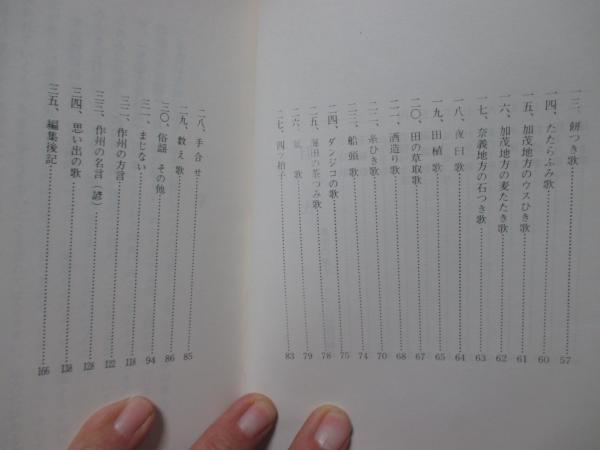 一三、餅つき歌……57
一四、たたらふみ歌……60
一五、加茂地方のウスひき歌……61
一六、加茂地方の麦たたき歌……62
一七、奈義地方の石つき歌……63
一八、夜臼歌……64
一九、田植歌……65
二〇、田の草取歌……67
二一、酒造り歌……68
二二、糸ひき歌……70
二三、船頭歌……74
二四、ダンジコの歌……75
二五、海田の茶つみ歌……78
二六、歌……79
二七、四ツ拍子……83
二八、手合せ……85
二九、数え歌……86
三〇、俗謡 その他……94
三一、まじない……118
三二、作州の方言……122
三三、作州の名言(諺)……128
三四、思い出の歌……138
三五、編集後記……166